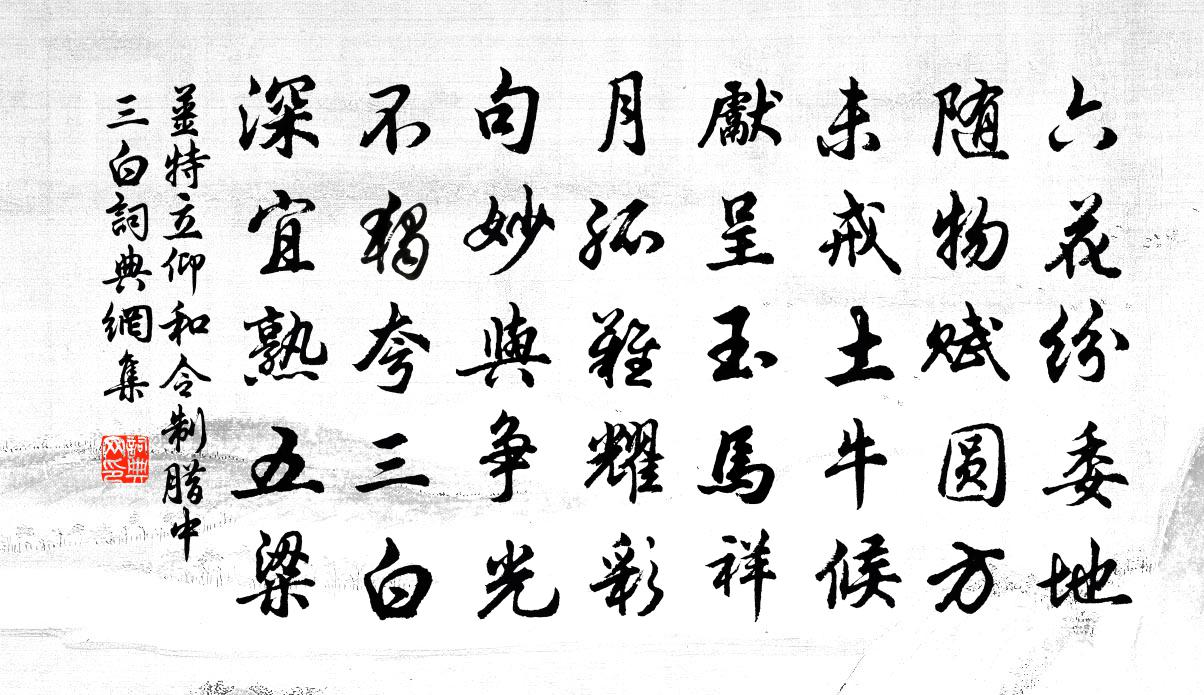 六花纷委地
随物赋圆方
未戒土牛候
獻呈玉馬祥
月孤難耀彩
句妙與争光
不獨夸三白
深宜熟五粱
薑特立仰和令制腊中
三白詞典網集
詞典网印